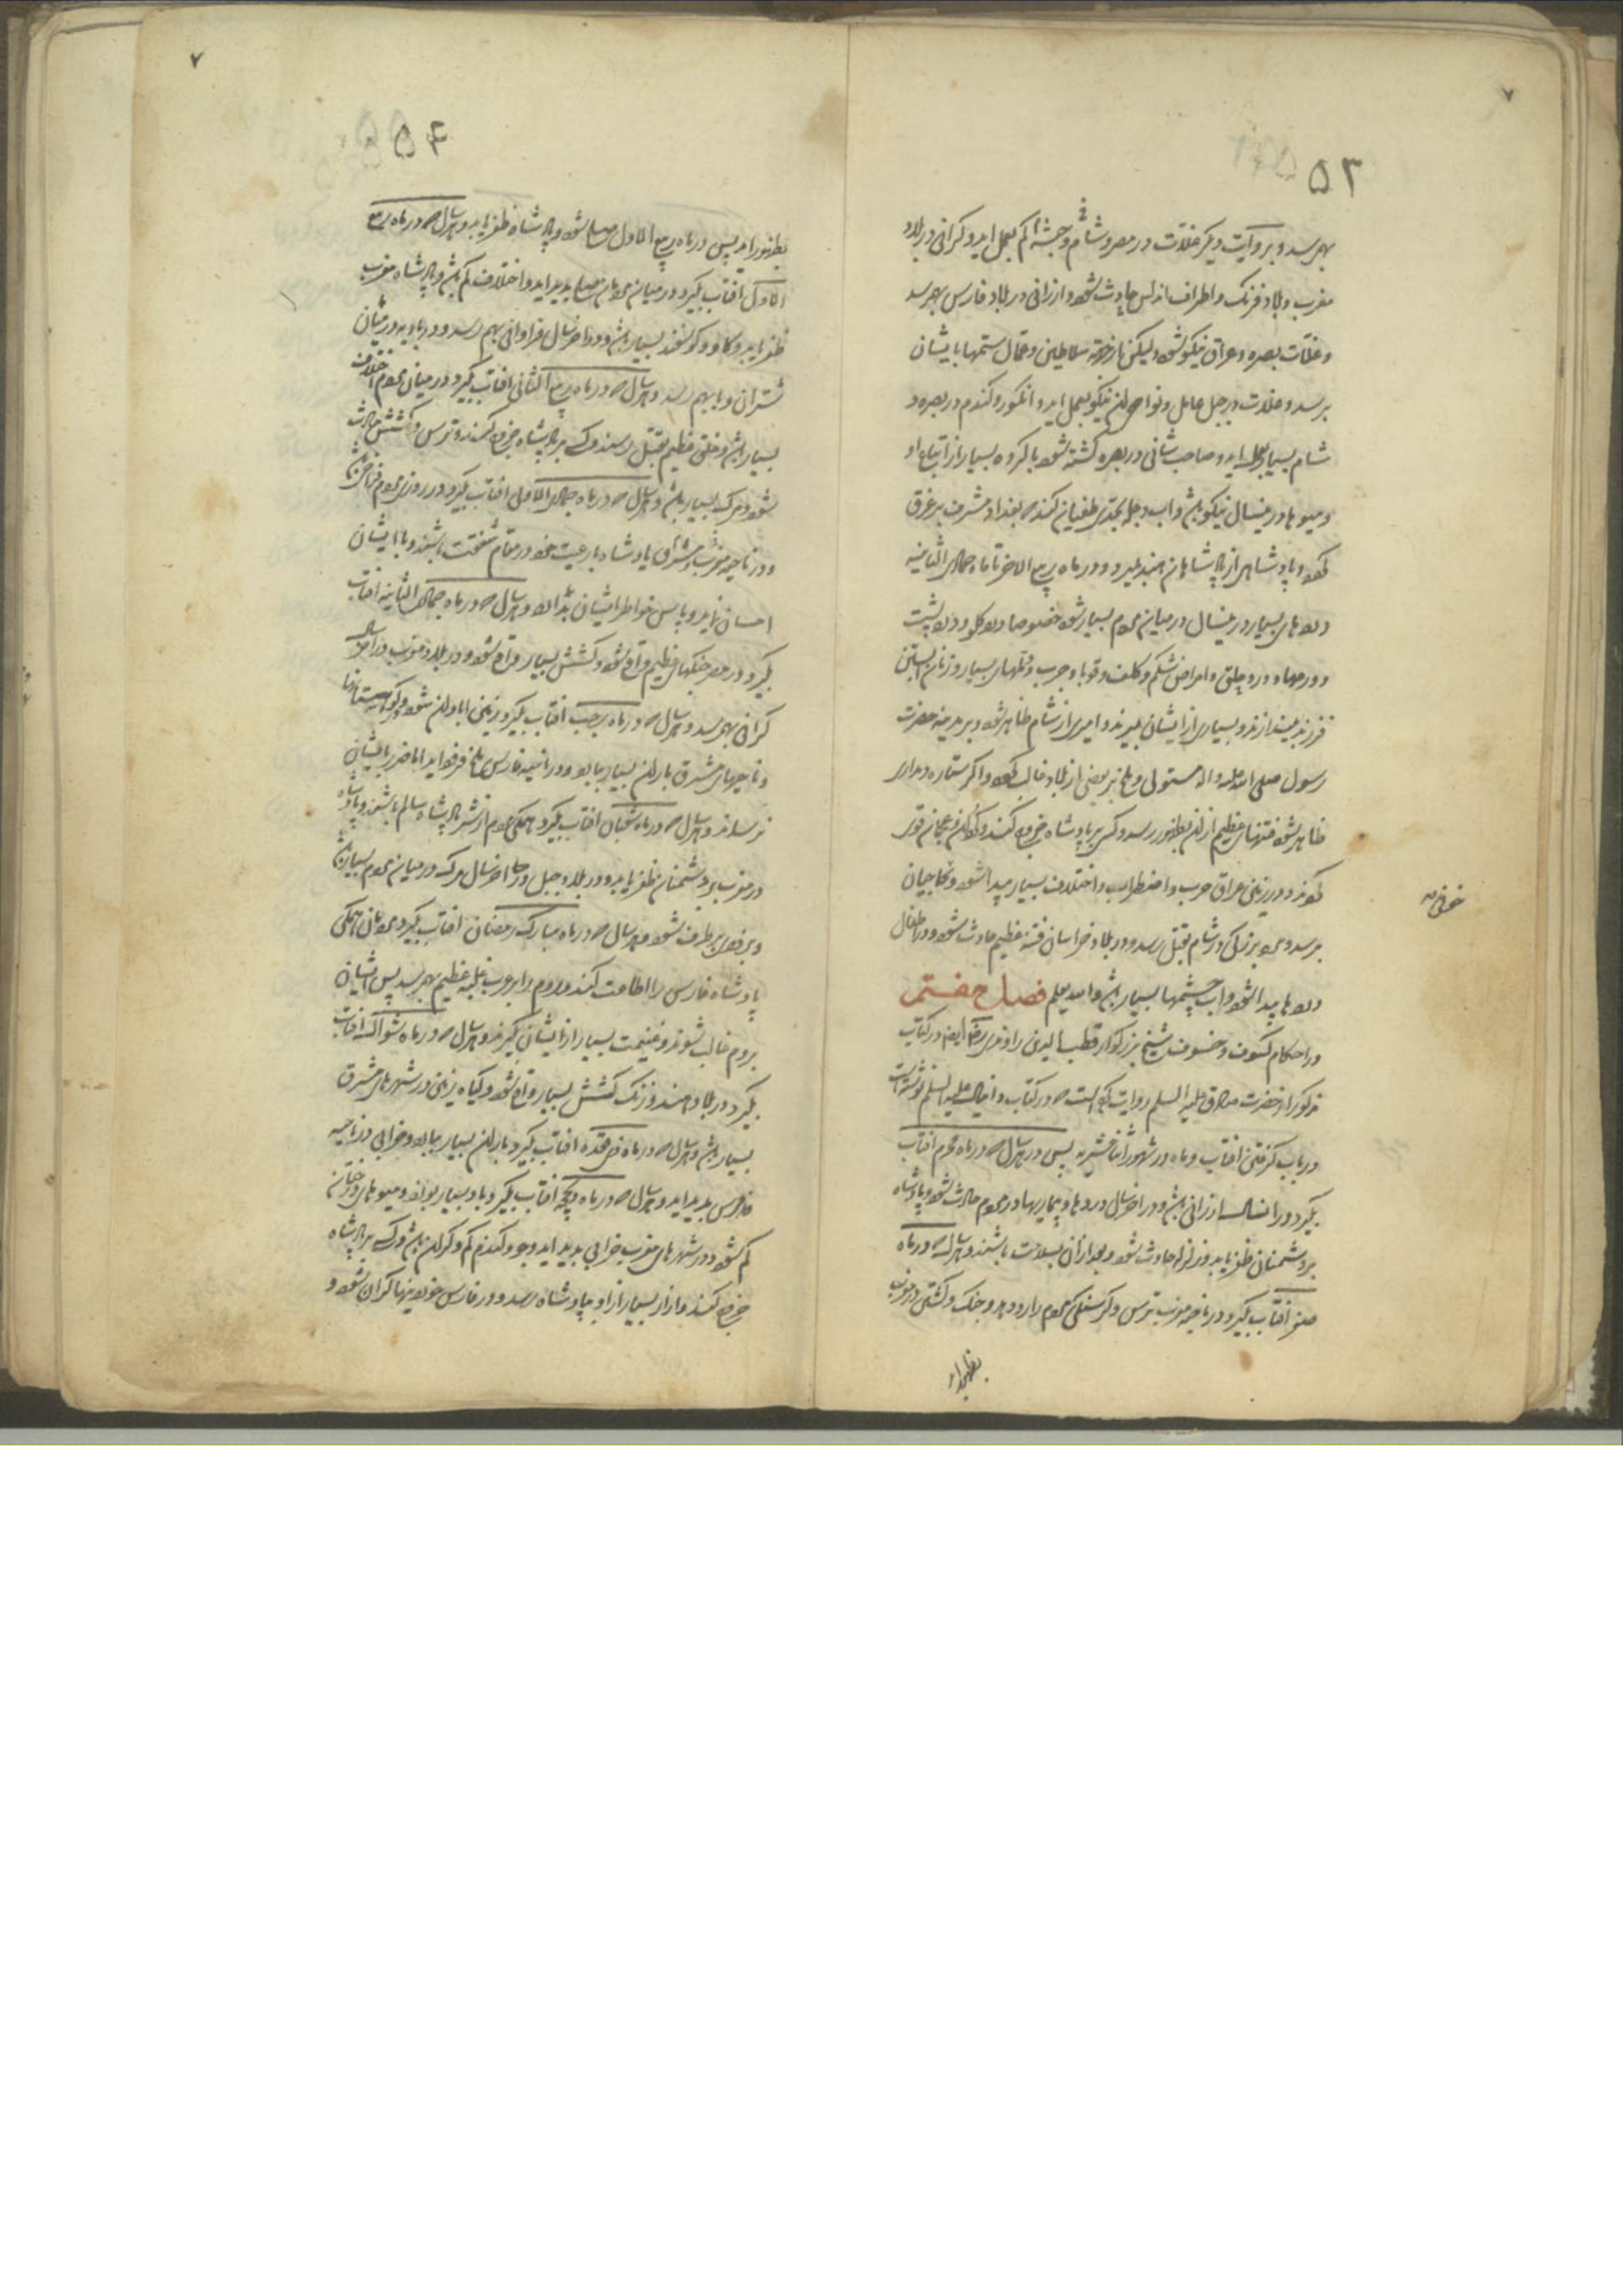 ٧
٥٣
بهرسد و بروایت دیگر غلات در مصر و شام و حبشه کم بعمل اید و کرانی در بلاد
مغرب و بلاد فرنک و اطراف اندلس حادث شود و ارزانی در بلاد فارس بهرسد
و غلات بصره و عراق نیکو شود ولیکن از جهة سلاطین و عمال ستمها بایشان
برسد و غلات در جبل عامل و نواحی ان نیکو بعمل اید و انکور و کندم در بصره و
شام بسیار بعمل اید و صاحب شانی در بصره کشته شود با کروه بسیار از اتباع او
و میوها در ینسال نیکو باشد و اب دجله بحدی طغیان کند که بغداد مشرف بر غرق
شود و پادشاهی از پادشاهان هند بمیرد و در ماه ربیع الاخر تا ماه جمادی الثانیه
دردهای بسیار در ینسال در میان مردم بسیار شود خصوصا درد کلو و درد پشت
و ورمها و درد حلق و امراض شکم و کلف و قوبا و جرب و دملهای بسیار و زنان ابستن
فرزند بیندازند و بسیاری از ایشان بمیرند و امیری از شام ظاهر شود و بر مدینه حضرت
رسول صلی الله علیه و اله مستولی و بر بعضی از بلاد غالب شود و اکر ستاره دمداری
ظاهر شود فتنهای عظیم از ان بظهور رسد و کسی بر پادشاه خروج کند و
شوند و در زمین عراق حرب و اضطراب و اختلاف بسیار پیدا شود و بحاجیان
خوفی
برسد و مرد بزرکی در شام بقتل رسد و در بلاد خراسان فتنه عظیم حادث شود و در اطفال
دردها پیدا شود و اب چشمها بسیار باشد والله یعلم فصل هفتم
در احکام کسوف و خسوف شیخ بزرکوار قطب الدین راوندی ایضا در کتاب
مذکور از حضرت صادق علیه السلم روایت کرده است که در کتاب دانیال علیه السلم نوشته است
در باب کرفتن افتاب و ماه در شهور اثناعشریه پس در هر سال که در ماه محرم افتاب
بکیرد در انسال ارزانی باشد و در اخر سال دردها و بیماریها در مردم حادث شود و پادشاه
بر دشمنان ظفر یابد و زلزله حادث شود و بعد از ان بسلامت باشند و هر سال که در ماه
صفر افتاب بکیرد در ناحیه مغرب ترس و کرسنکی مردم را رو دهد و جنک و کشتن در مغرب
بظهور اید
٧
٥٤
بظهور اید پس در ماه ربیع الاول صلح شود و پادشاه ظفر یابد و هر سال که در ماه ربیع
الاول افتاب بکیرد در میان مردمان صلح پدید اید و اختلاف کم باشد و پادشاه مغرب
ظفر یابد و کاو و کوسفند بسیار باشد و در اخر سال فراوانی بهم رسد و در بادیه در میان
شتران وبا بهم رسد و هر سال که در ماه ربیع الثانی افتاب بکیرد در میان مردم اختلاف
بسیار باشد و خلق عظیم بقتل رسند و کسی بر پادشاه خروج کند و ترس و کشش حادث
شود و مرک بسیار باشد و هر سال که در ماه جمادی الاول افتاب بکیرد در روزی مردم فراخی باشد
و در ناحیه مغرب و مشرق پادشاه با رعیت خود در مقام شفقت باشد و با ایشان
احسان نماید و پاس خواطر ایشان بدارد و هر سال که در ماه جمادی الثانیه افتاب
بکیرد در مصر جنکهای عظیم واقع شود و کشش بسیار واقع شود و در بلاد مغرب در اخر سال
کرانی بهرسد و هر سال که در ماه رجب افتاب بکیرد زمین ابادان شود و در کوهستانها
و ناحیهای مشرق باران بسیار ببارد و در ناحیه فارس ملخ فرود اید اما ضرر بایشان
نرساند و هر سال که در ماه شعبان افتاب بکیرد همکی مردم از شر پادشاه سالم باشند و پادشاه
در مغرب بر دشمنان ظفر یابد و در بلاد جبل در اخر سال مرک در میان مردم بسیار باشد
و بزودی برطرف شود و هر سال که در ماه مبارک رمضان افتاب بکیرد مردمان همکی
پادشاه فارس را اطاعت کنند و روم را بر عرب غلبه عظیم بهرسد پس ایشان
بر روم غالب شوند و غنیمت بسیار از ایشان بکیرند و هر سال که در ماه شوال افتاب
بکیرد در بلاد هند و زنک کشش بسیار واقع شود و کیاه زمین در شهرهای مشرق
بسیار باشد و هر سال که در ماه ذی قعده افتاب بکیرد باران بسیار ببارد و خرابی در ناحیه
فارس پدید اید و هر سال که در ماه ذیحجه افتاب بکیرد باد بسیار بوزد و میوهای درختان
کم شود و در شهرهای مغرب خرابی پدید اید و جو و کندم کم و کران باشد و کسی بر پادشاه
خروج کند و ازار بسیار از او بپادشاه رسد و در فارس خوردنیها کران شود و